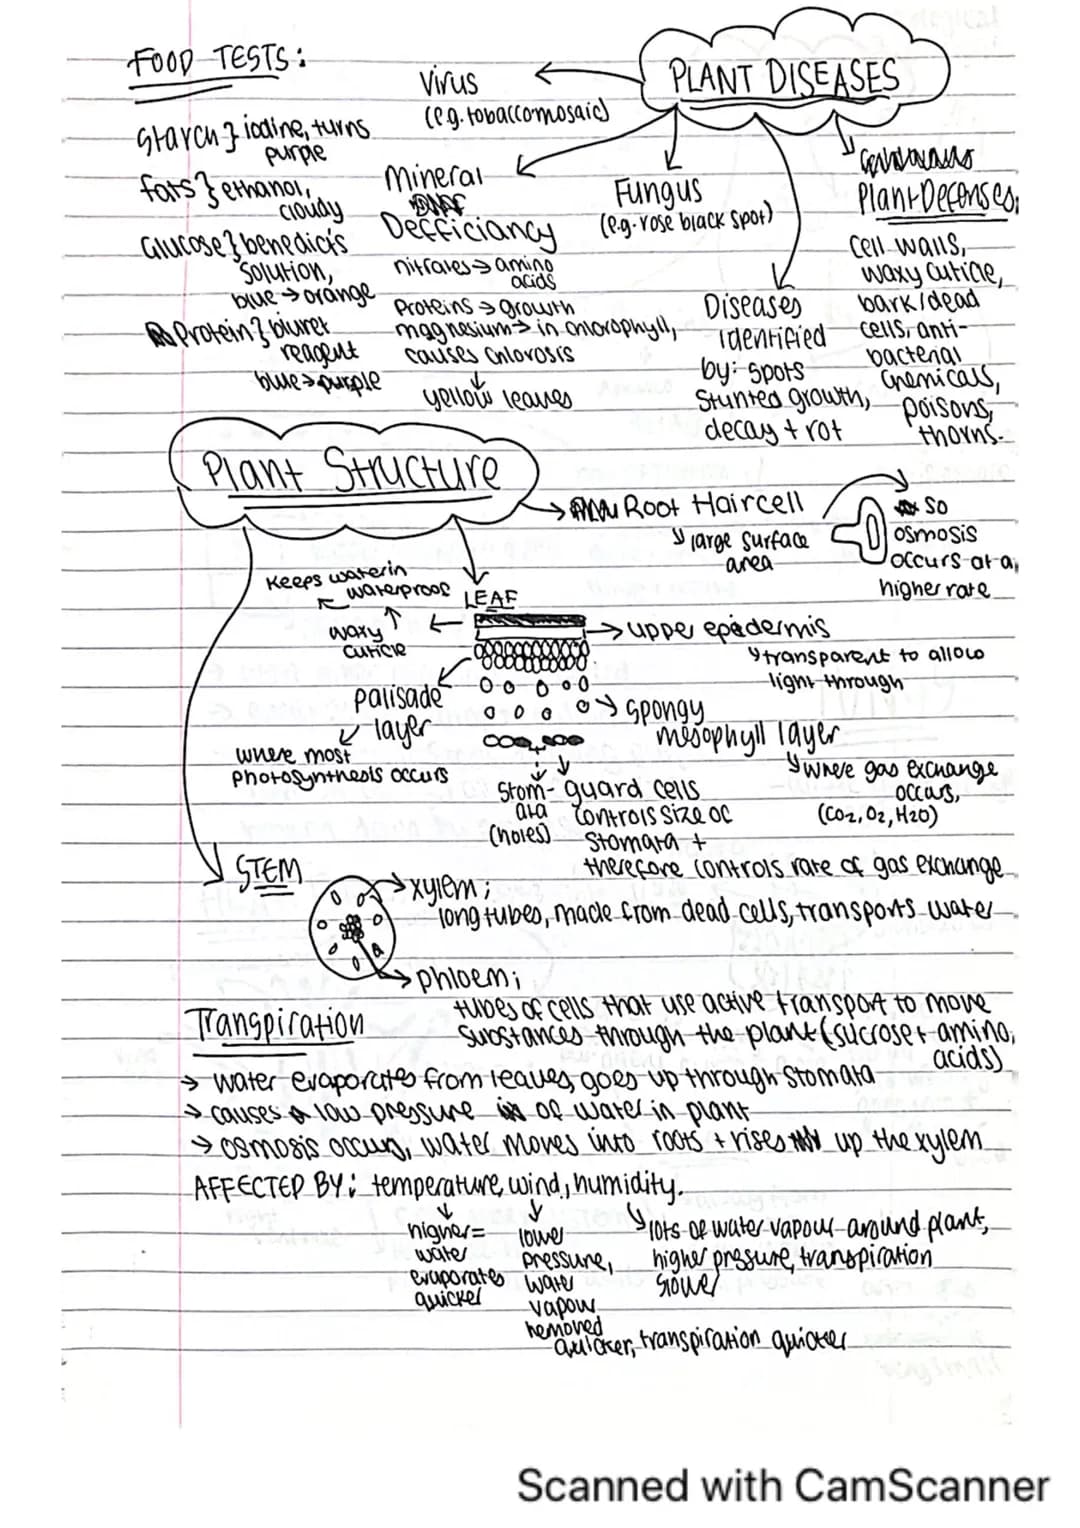 FOOD TESTS:
starch } iodine, turns
purple
fats } ethanol,
cloudy
Glucose } benedict's
solution,
blue → orange
Protein } biuret
reagent
blue → purple
PLANT DISEASES
Virus
(e.g. tobacco mosaic)
Mineral
Defficiancy
nitrates → amino
acids
Proteins → growth
magnesium → in chlorophyll,
causes chlorosis
↓
yellow leaves
Fungus
(e.g. rose black spot)
Diseases
identified
by: spots
stunted growth,
decay + rot
Plant Defenses.
cell walls,
waxy cuticle,
bark/dead
cells, anti-
bacterial
chemicals,
poisons,
thorns.
Plant Structure
→ Root Haircell
↳ large surface
area
so
osmosis
occurs at a
higher rate
LEAF
waxy
cuticle
keeps water in
waterproof
→ upper epidermis
↳ transparent to allow
light through
palisade
layer
where most
photosynthesis occurs
spongy
mesophyll layer
↳ where gas exchange
occurs,
(CO2, O2, H2O)
Stom-
ata
(holes)
guard cells
controls size of
stomata +
therefore controls rate of gas exchange
STEM
→ xylem;
long tubes, made from dead cells, transports water
→ phloem;
tubes of cells that use active transport to move
substances through the plant (sucrose + amino
acids)
Transpiration
→ water evaporates from leaves, goes up through stomata
→ causes low pressure of water in plant
→ osmosis occurs, water moves into roots + rises up the xylem
AFFECTED BY: temperature, wind, humidity.
higher =
water
evaporates
quicker
lower
pressure,
water
vapour
removed
quicker, transpiration quicker
↳ lots of water vapour around plant,
higher pressure, transpiration
slower
Scanned with CamScanner